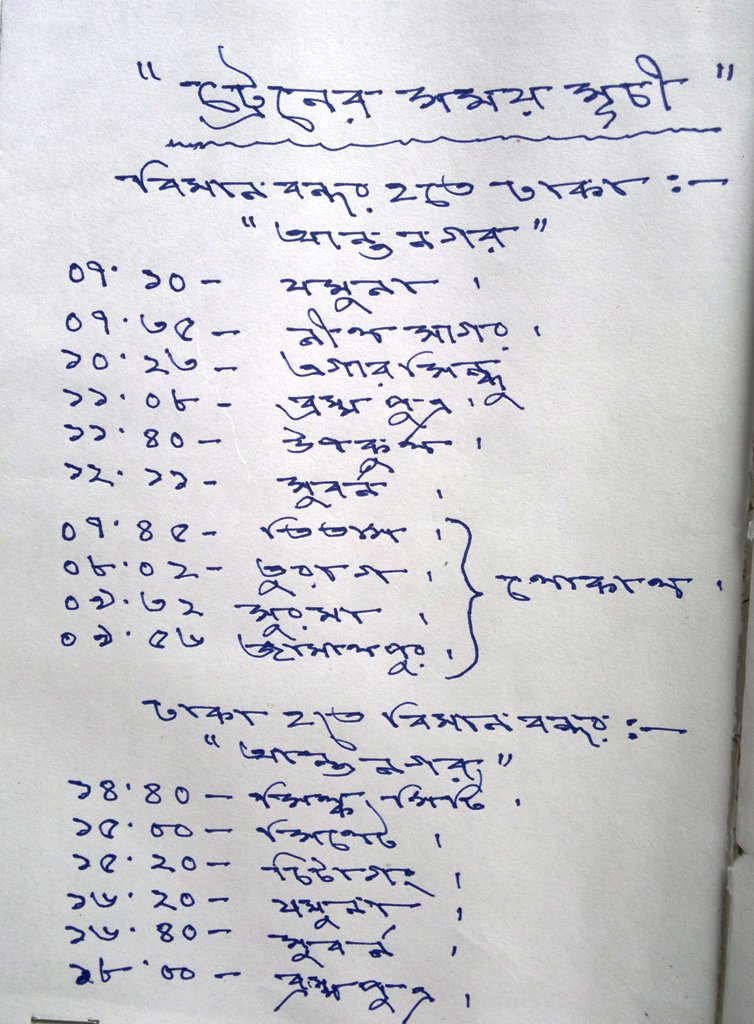 "ট্রেনের সময় সূচী"
বিমান বন্দর হতে ঢাকা :—
"আন্ত নগর"
০৭.১০ – যমুনা ।
০৭.৩৫ – নীল সাগর ।
১০.২৩ – এগারসিন্ধু
১১.০৮ – ব্রহ্মপুত্র ।
১১.৪০ – উপকূল ।
১২.১১ – সুবর্ন ।
০৭.৪৫ – তিতাস ।
০৮.০২ – তুরাগ । লোকাল ।
০৯.৩২ সুরমা ।
০৯.৫৬ জামালপুর ।
ঢাকা হতে বিমান বন্দর :—
"আন্ত নগর"
১৪.৪০ – সিল্ক সিটি ।
১৫.০০ – সিলেট ।
১৫.২০ – চিটাগং ।
১৬.২০ – যমুনা ।
১৬.৪০ – সুবর্ন ।
১৮.০০ – ব্রহ্মপুত্র ।